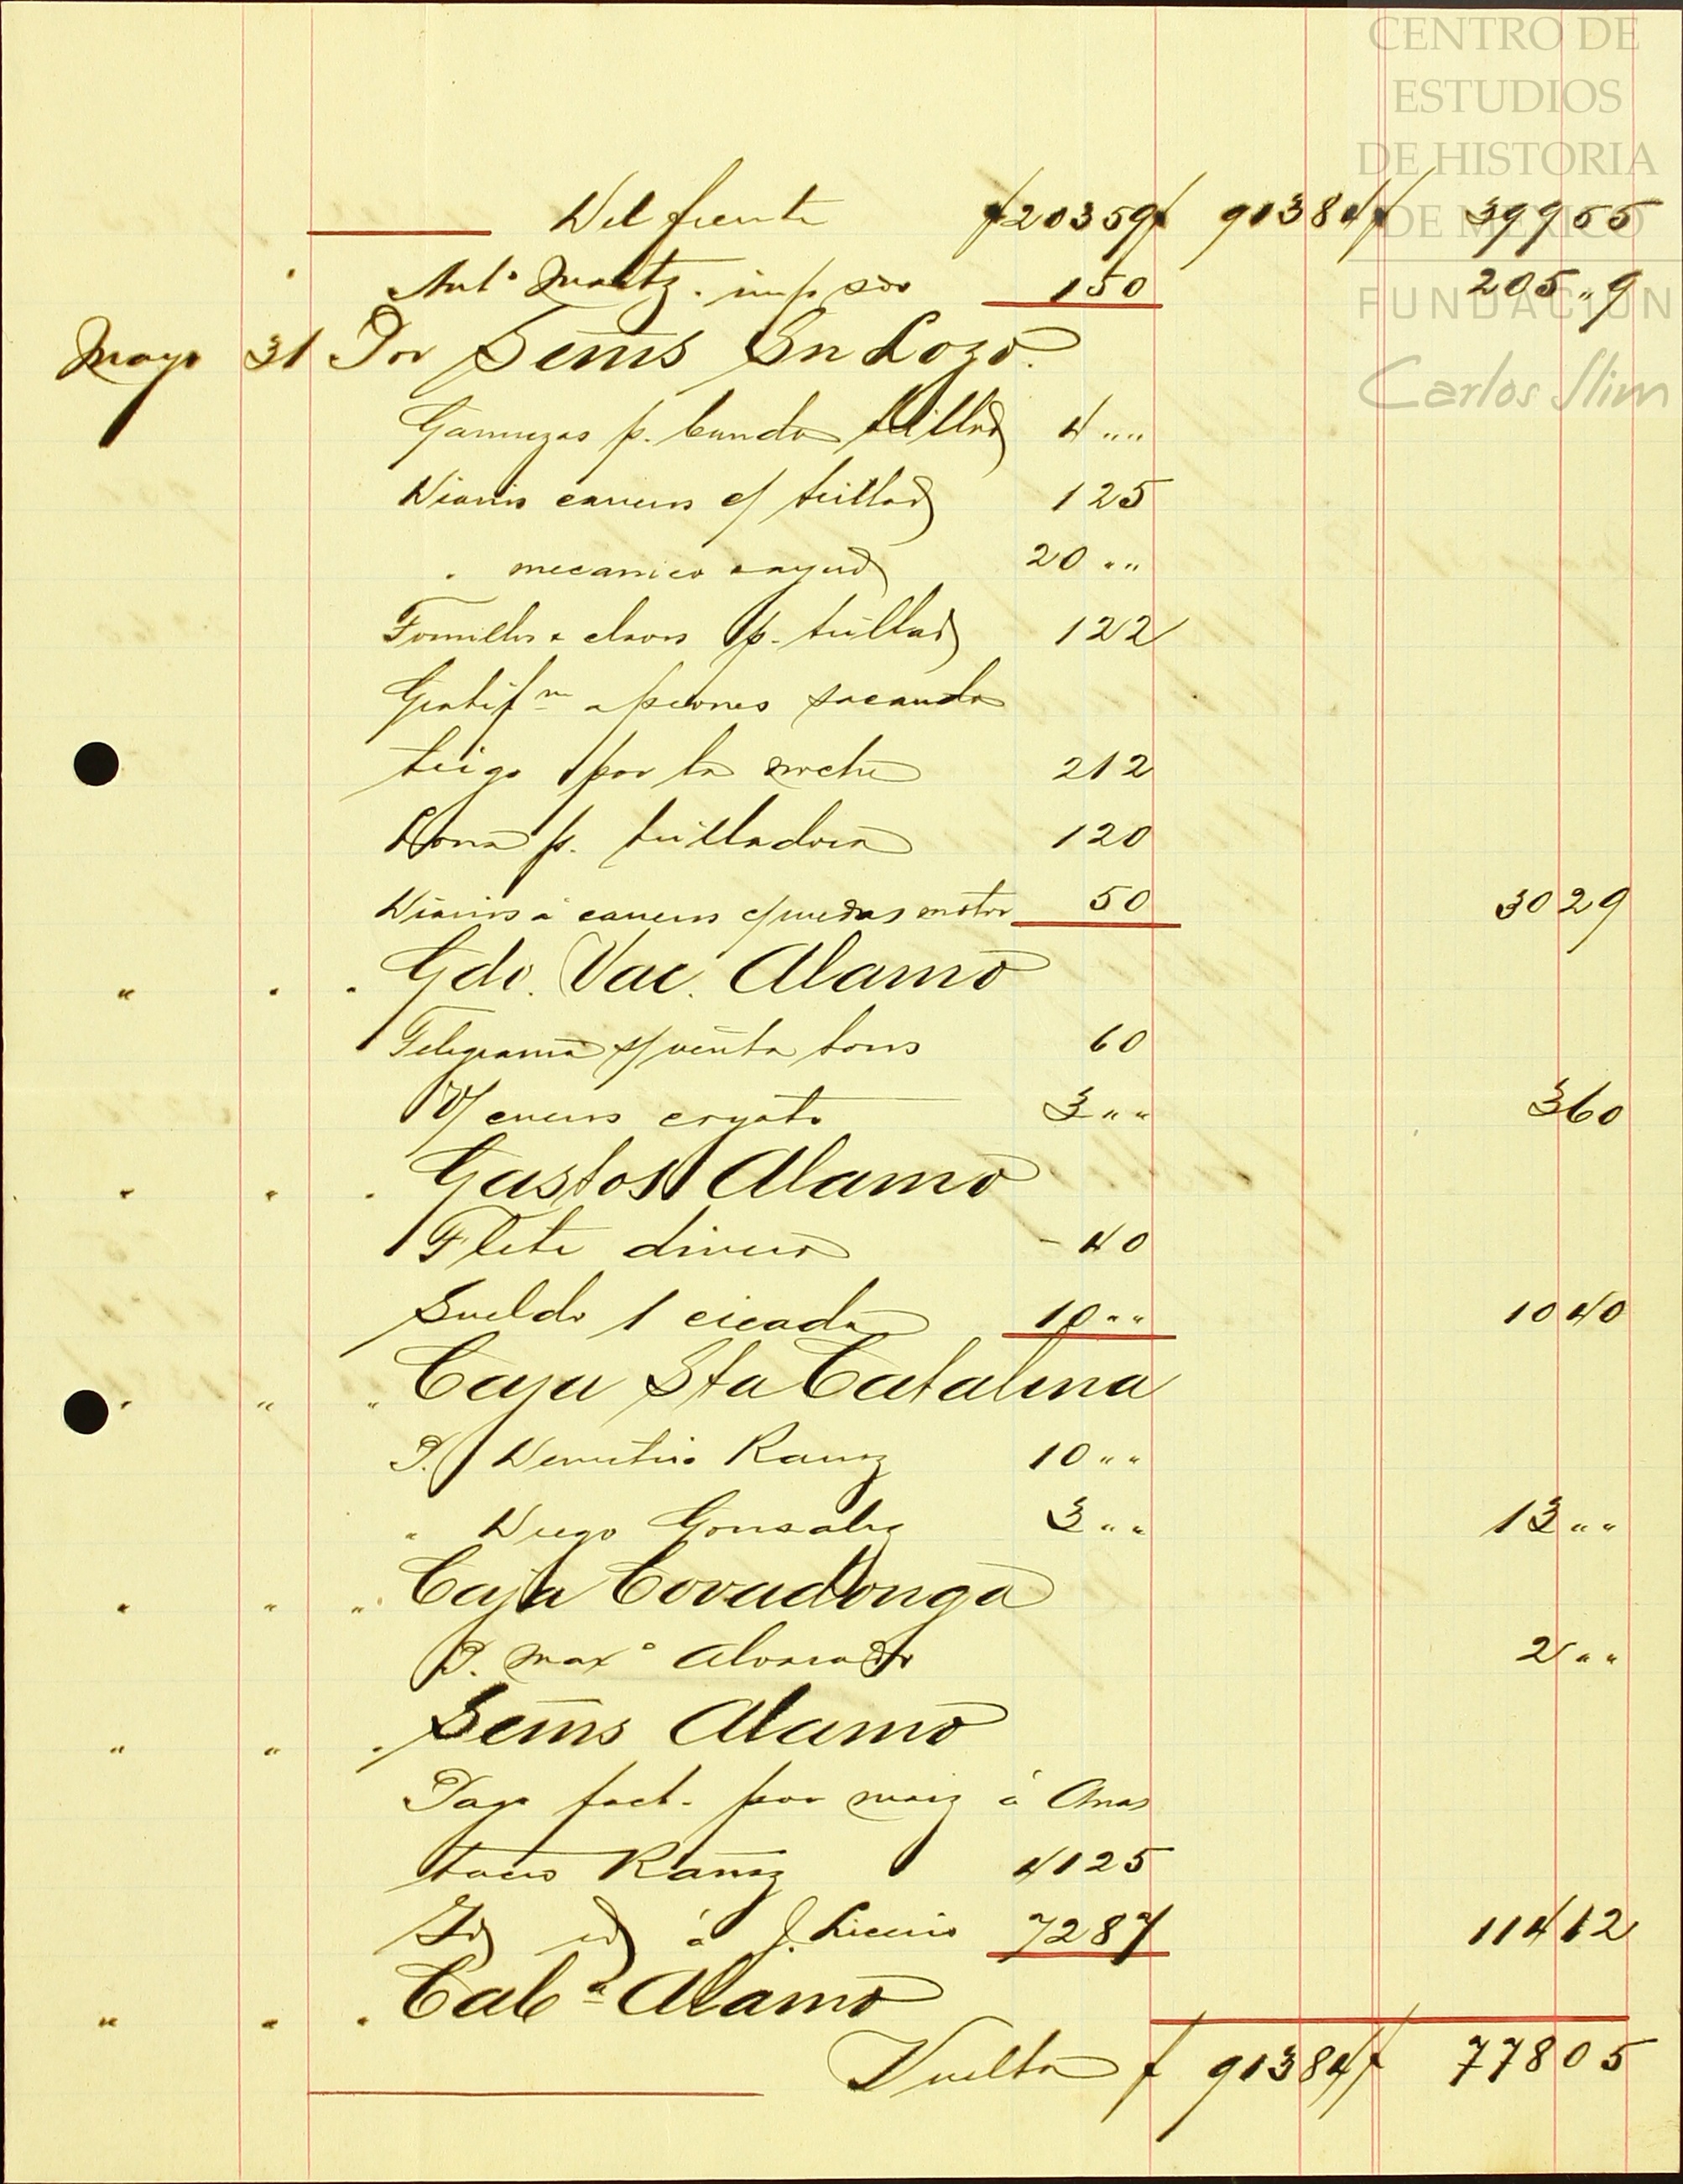 CENTRO DE
ESTUDIOS
DE HISTORIA
DE MEXICO
FUNDACION
Carlos Slim
Del frente $20359 $ 91384 $ 39955
Anto Martz. imp so 150 205 " 9
Mayo 31 Por Sems Sn Lozo.
Gamuzas p. banda trillad 4 " "
Diarios carreros c/ trillad 125
" mecanico ayud 20 " "
Tornillos & clavos p. trillad 122
Gratifn a peones sacando
trigo por la noche 212
Lona p. trilladora 120
Diarios á carreros c/ruedas motor 50 3029
" " " Gdo. Vac. Alamo
Telegrama s/ venta toros 60
cueros coyote 3 " " 360
" " " Gastos Alamo
Flete dinero 40
Sueldo 1 criada 10 " " 1040
" " " Caja Sta Catalina
P. Demetrio Ramz 10 " "
" Diego Gonsalez 3 " " 13 " "
" " " Caja Covadonga
P. Maxo Alvarado 2 " "
" " " Sems Alamo
Pago fact. por maiz á Anas
tacio Ramz 4125
Id id á J. Licerio 7287 11412
" " " Caba Alamo
Vuelta $ 91384 $ 77805